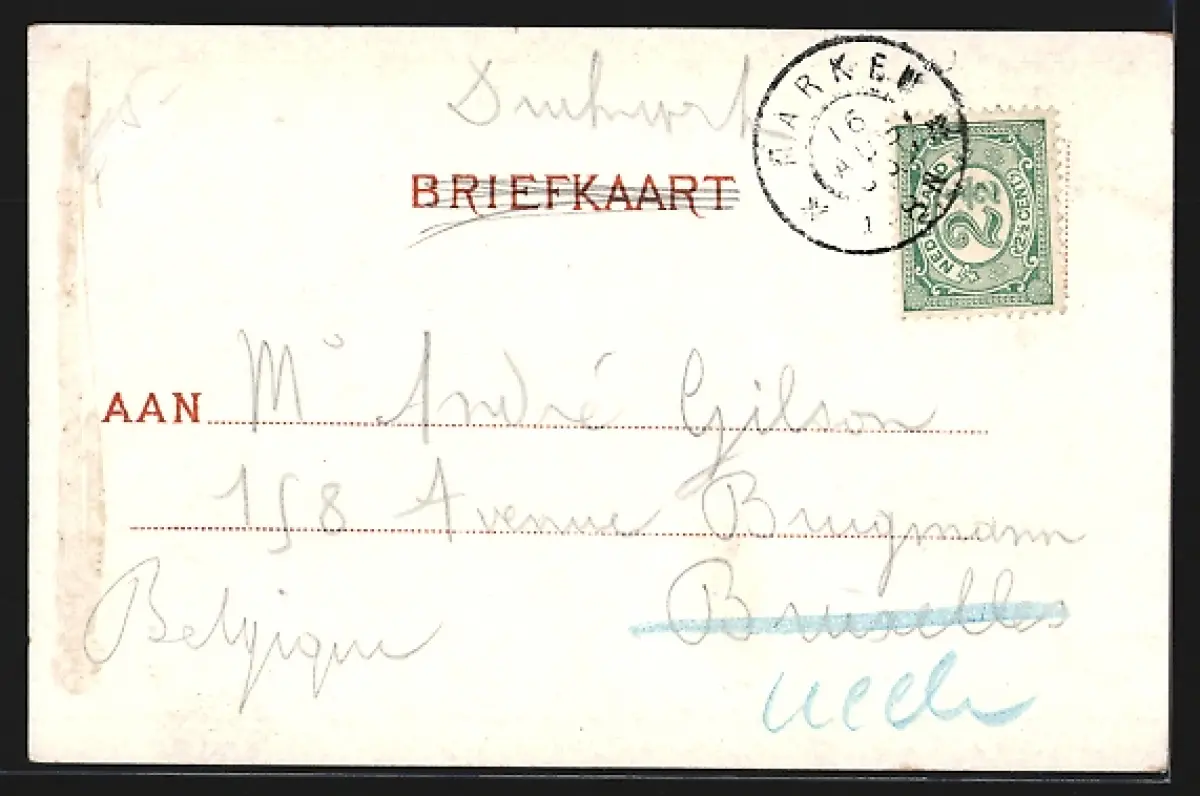 Drukwerk
MARKEN
16
BRIEFKAART
NED
2½
2½ CENT
AAN Mr André Gilson
158 Avenue Brugmann
Belgique Bruxelles
Uccle